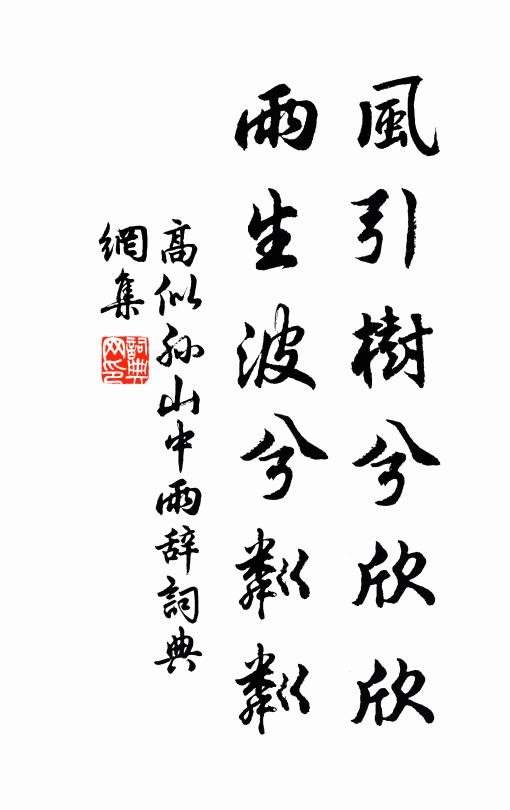 風引樹兮欣欣
雨生波兮粼粼
高似孙山中雨辞詞典
網集
詞典
网印